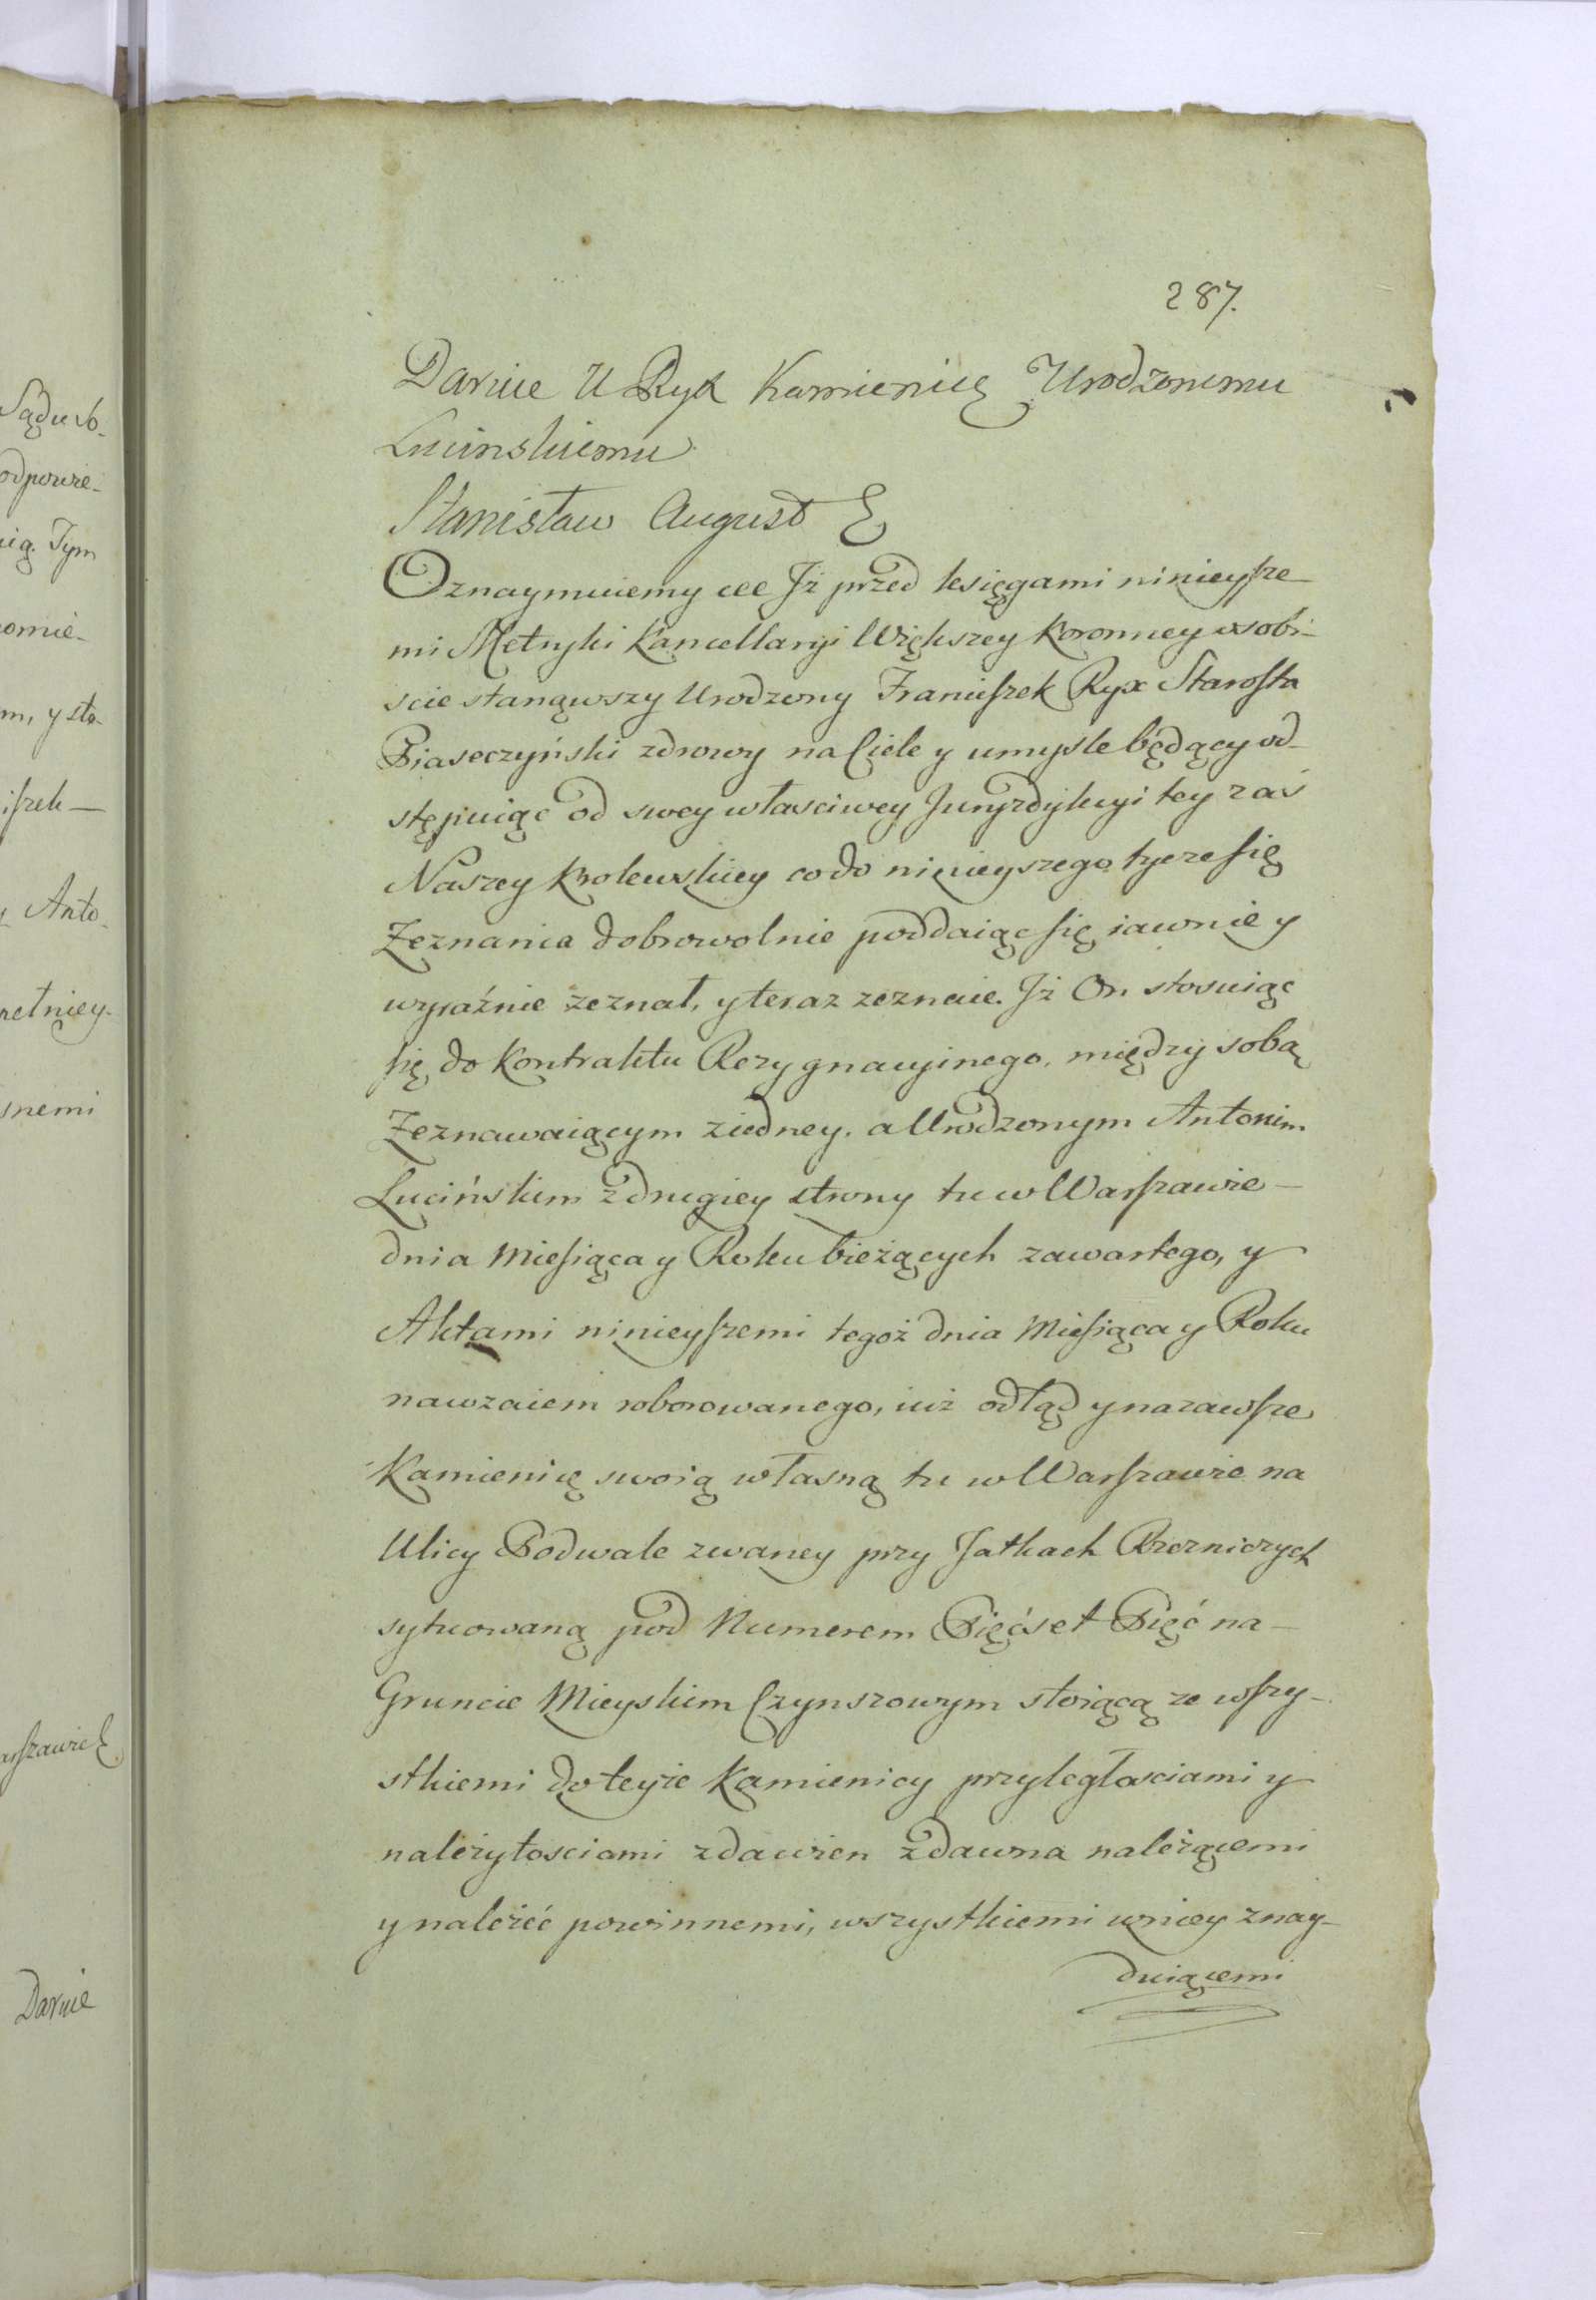 Sądu sb-
odpowie-
nią. Tym
omie-
m, y sta-
iszek —
y Anto-
netniey-
snemi
arszawie &
Daruie
287.
Daruie U Ryx Kamienicę Urodzonemu
Lucinskiemu
Stanisław August &
Oznaymuiemy &&& Jż przed księgami ninieysze-
mi Metryki Kancellaryi Większey Koronney osobi-
scie stanąwszy Urodzony Franciszek Ryx Starosta
Piaseczyński zdrowy na Ciele y umysle będący od-
stępuiąc od swey własciwey Juryzdykcyi tey zaś
Naszey Krolewskiey co do ninieyszego tycze się
Zeznania dobrowolnie poddaiąc się iawnie y
wyraźnie zeznał, y teraz zeznaie. Jż On stosuiąc
się do Kontraktu Rezygnacyinego. między sobą
Zeznawaiącym z iedney. a Urodzonym Antonim
Lucińskim z drugiey strony tu w Warszawie —
dnia Miesiąca y Roku bieżących zawartego, y
Aktami ninieyszemi tegoż dnia Miesiąca y Roku
nawzaiem roborowanego, iuż odtąd y na zawsze
Kamienicę swoią własną tu w Warszawie na
Ulicy Podwale zwaney przy Jatkach Rzezniczych
sytuowaną pod Numerem Pięćset Pięć na —
Gruncie Mieyskim Czynszowym stoiącą ze wszy-
stkiemi do teyże Kamienicy przyległosciami y
należytosciami zdawien zdawna należącemi
y należeć powinnemi, wszystkiemi w niey znay-
duiącemi